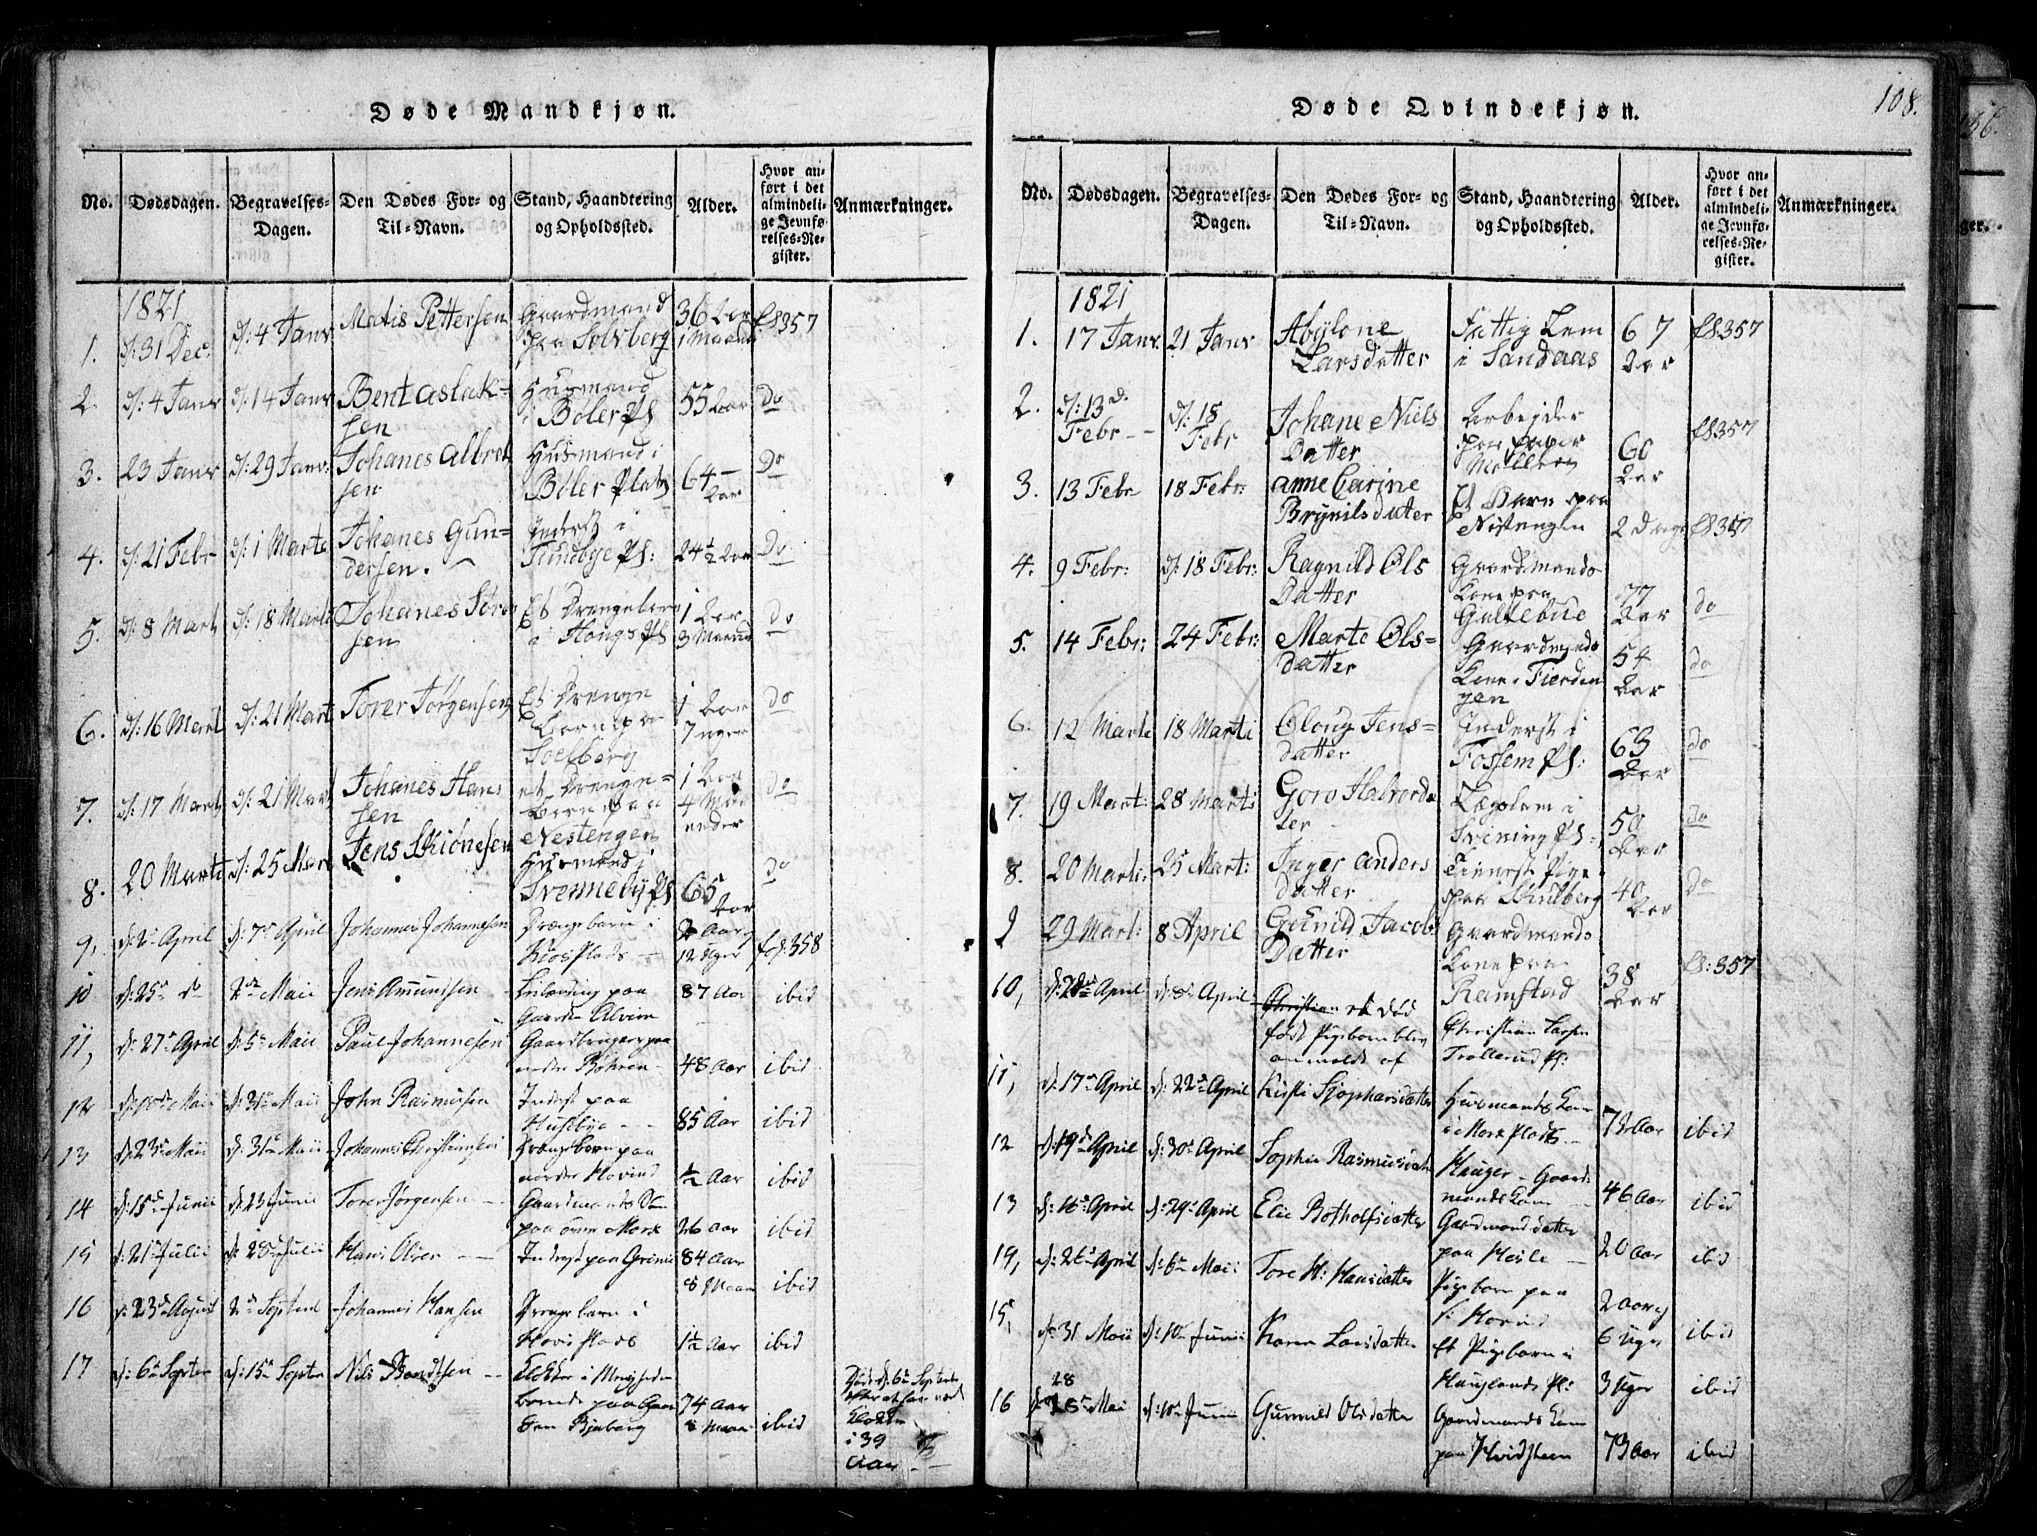 108.
Døde Mandkjøn.
No. Dødsdagen. Begravelses-Dagen. Den Dødes For- og Til-Navn. Stand, Haandtering og Opholdssted. Alder. Hvor anført i det almindelige Jevnførelses-Register. Anmærkninger.
1821
1. d: 31 Dec: d: 4 Janr Matis Pettersen Gaardmand paa Solberg 36 Aar 1 Maaned fol 357
2. d: 4 Janr d: 14 Janr Bent Aslaksen Husmand i Bøler Pl 55 Aar Do
3. 23 Janr d: 29 Janr: Johanes Albretsen Husmand i Bøler Plats 64 Aar Do
4. d: 21 Febr d: 1 Marti Johanes Gundersen. Inderst i Tundbye Pl: 24 1/2 Aar Do
5. d: 8 Marti d: 18 Marti Johanes Sørensen Et Drengebarn i Hougs Pl 1 Aar 3 Maaned do
6. d: 16 Mart d: 21 Mart Torer Jørgensen Et Drenge Barn paa Soelberg 1 Aar 7 uger do
7. d: 17 Marti d: 21 Mart Johanes Hansen et Drenge-Barn paa Nestengen 1 Aar 4 Maaneder do
8. 20 Marti d: 25 Mart Jens Skionesen Husmand i Svenneby Pl 65 Aar do
9, d: 2 April d: 7 April Johannes Johannesen Drængebarn i Plads 12 Uger fol: 358
10 d: 25 d 2 Maii Jens Amundsen paa Gaarden Alvim 87 Aar ibid
11, d: 27 April d: 5 Maii Paul Johannesen Gaardbruger paa nedre Bøhren 48 Aar ibid
12 d: 10 Maii d: 31 Maii John Rasmusen Inderst paa Huseby 85 Aar ibid
13 d: 23 Maii d: 31 Maii Johannes Christiansen Drængebarn paa nordre Hovind 1/2 Aar ibid
14 d: 15 Junii d: 23 Junii Torer Jørgensen Gaardmands Søn paa øvre Mork 26 Aar ibid
15 d: 21 Julii d: 28 Julii Hans Olsen Inderst paa Grimi 84 Aar 8 Maan ibid
16 d: 23 August 2 Septem Johannes Hansen Drengebarn i Hovis Plads 1 1/2 Aar ibid
17 d: 6 Septem d: 15 Septem Nils Bendtsen Klokker i Menigheden boende paa Gaarden Bjuberg 74 Aar 8 Maan ibid Døde d: 6 Septem efter at have været Klokker i 39 Aar
Døde Qvindekjøn.
No. Dødsdagen. Begravelses-Dagen. Den Dødes For- og Til-Navn. Stand, Haandtering og Opholdssted. Alder. Hvor anført i det almindelige Jevnførelses-Register. Anmærkninger.
1821
1. 17 Janr. 21 Janr Abylone Larsdatter Fattig Lem i Sandaas 67 Aar fol 357
2. d: 13 d. Febr d: 18 Febr Johane Niels Datter Arbejder 60 Aar fol 357
3. 13 Febr 18 Febr: anne Carine Brynils datter Et Barn paa Nestengen 2 Dage fol 357
4. 9 Febr: d: 18 Febr: Ragnild Ols Datter Gaardmands Kone paa Gultebue 77 Aar do
5. 14 Febr: 24 Febr: Marte Ols-datter Gaardmands Kone i Fierdingen 54 Aar do
6. 12 Marti 18 Marti Oloug Jens-datter Inderst i Fossem Pl: 63 Aar do
7. 19 Mart: 28 Marti Goro Halvordater Lægslem i Svining Pl: 50 Aar do
8. 20 Marti: 25 Mart: Inger Anders datter Tieneste Pige paa Skulberg 40 Aar do
9 29 Mart: 8 April Gunild Jacobs Datter Gaardmands Kone paa Ramstad 38 Aar fol: 357
10, d: 2 April d: 8 April Christian et død født Pigebarn blev anmeldt af Christian Larsen Trollerud Pl:
11, d: 17 April d: 22 April Kirsti Sjopharsdatter Husmands Kone i Mork Plads 73 Aar ibid
12 d: 19 April d: 30 April Sophia Rasmusdatter Hauger Gaardmands Kone 46 Aar ibid
13 d: 16 April d: 29 April Elie Botholfsdatter Gaardmands datter paa Hesle 20 Aar ibid
14, d: 26 April d: 6 Maii Tore H: Hansdatter Pigebarn paa N: Hovind 2 Aar 6 Uger ibid
15, d: 31 Maii d: 10 Junii Karen Larsdatter Et Pigebarn i Hauglands Pl: 3 Uger ibid
16 d: 28 Mai d: 10 Junii Gunnild Olsdatter Gaardmands Kone paa Hvidsteen 73 Aar ibid